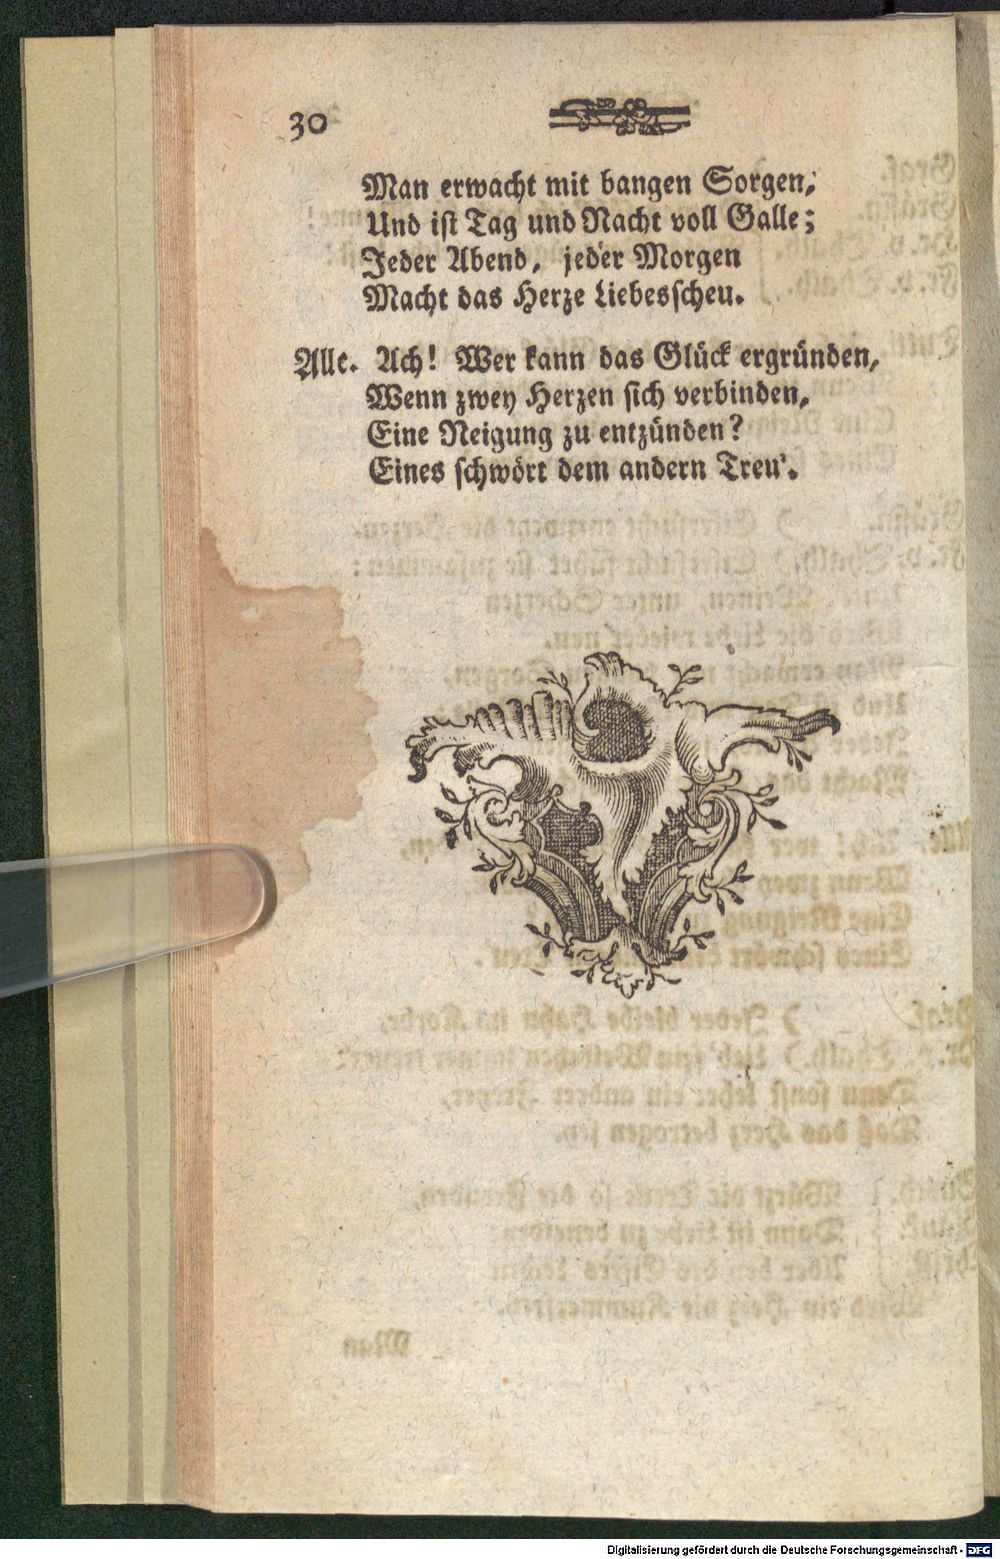 30
Man erwacht mit bangen Sorgen,
Und ist Tag und Nacht voll Galle;
Jeder Abend, jeder Morgen
Macht das Herze Liebesscheu.
Alle. Ach! Wer kann das Glück ergründen,
Wenn zwey Herzen sich verbinden,
Eine Neigung zu entzünden?
Eines schwört dem andern Treu'.
Digitalisierung gefördert durch die Deutsche Forschungsgemeinschaft - DFG